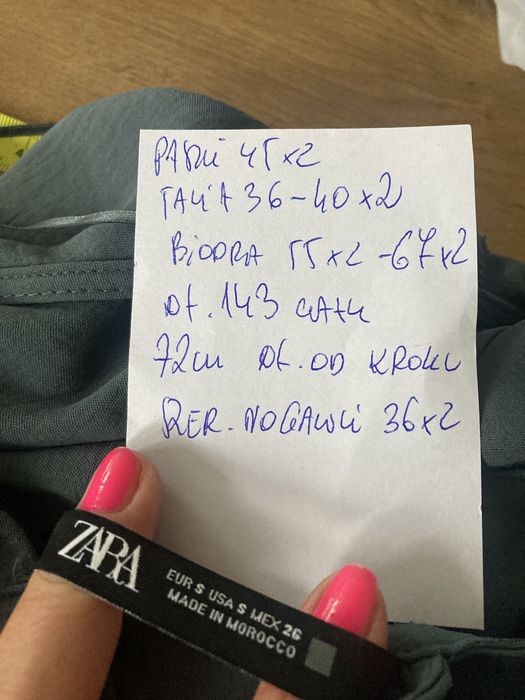 PASZKI 45x2
TALIA 36-40x2
BIODRA 55x2-67x2
Dł. 143 CAŁK
72cm Dł. OD KROKU
SZER. NOGAWKI 36x2
ZARA
EUR S USA S MEX 26
MADE IN MOROCCO